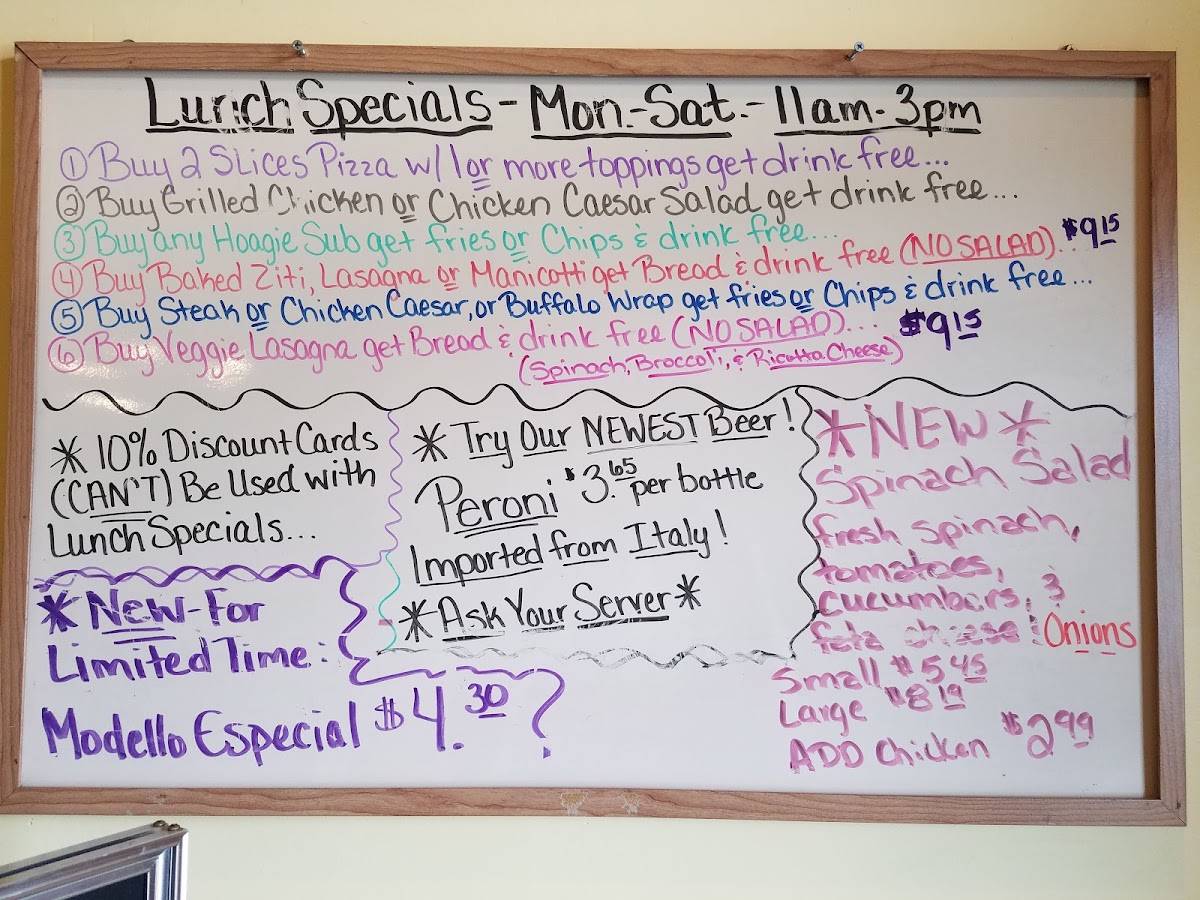 Lunch Specials - Mon.-Sat. - 11am - 3pm
① Buy 2 Slices Pizza w/ 1 or more toppings get drink free...
② Buy Grilled Chicken or Chicken Caesar Salad get drink free...
③ Buy any Hoagie Sub get fries or Chips & drink free...
④ Buy Baked Ziti, Lasagna or Manicotti get Bread & drink free (NO SALAD). $9.15
⑤ Buy Steak or Chicken Caesar, or Buffalo Wrap get fries or Chips & drink free...
⑥ Buy Veggie Lasagna get Bread & drink free (NO SALAD)... $9.15
(Spinach, Broccoli, & Ricotta Cheese)
* 10% Discount Cards
(CAN'T) Be Used with
Lunch Specials...
* New - For
Limited Time:
Modello Especial $4.30
* Try Our NEWEST Beer!
Peroni $3.65 per bottle
Imported from Italy!
* Ask Your Server *
* NEW *
Spinach Salad
fresh spinach,
tomatoes,
cucumbers, &
feta cheese & Onions
Small $5.45
Large $8.19
ADD Chicken $2.99